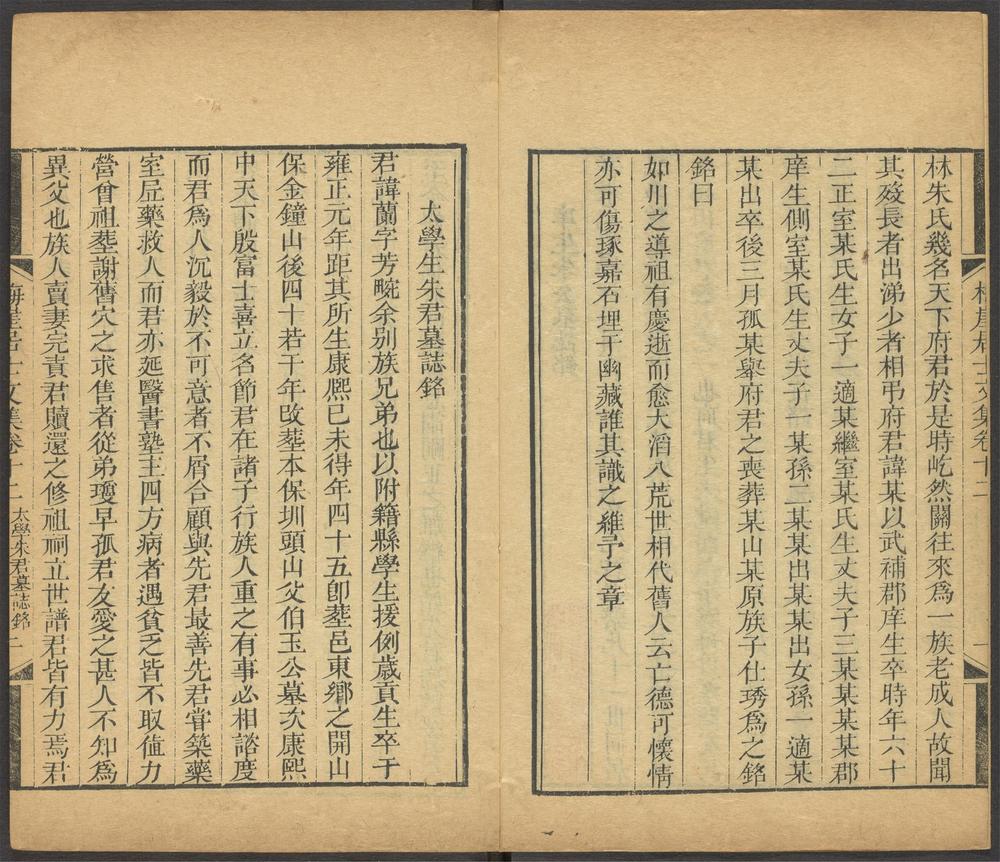 林朱氏幾名天下府君於是時屹然關往來爲一族老成人故聞
其歿長者出涕少者相弔府君諱某以武補郡庠生卒時年六十
二正室某氏生女子一適某繼室某氏生丈夫子三某某某某郡
庠生側室某氏生丈夫子一某孫三某某出某某出女孫一適某
某出卒後三月孤某舉府君之喪葬某山某原族子仕琇爲之銘
銘曰
如川之導祖有慶逝而愈大滔八荒世相代舊人云亡德可懷情
亦可傷琢嘉石埋于幽藏誰其識之維予之章
太學生朱君墓誌銘
君諱蘭字芳畹余别族兄弟也以附籍縣學生援例歲貢生卒于
雍正元年距其所生康熙已未得年四十五卽塟邑東鄉之開山
保金鐘山後四十若干年改塟本保圳頭山父伯玉公墓次康熙
中天下殷富士喜立名節君在諸子行族人重之有事必相諮度
而君爲人沉毅於不可意者不屑合顧與先君最善先君甞築藥
室㞐藥救人而君亦延醫書塾主四方病者遇貧乏皆不取値力
營曾祖塟謝舊穴之求售者從弟瓊早孤君友愛之甚人不知爲
異父也族人賣妻完責君贖還之修祖祠立世譜君皆有力焉君
梅崖居士文集卷十二 太學朱君墓誌銘 二